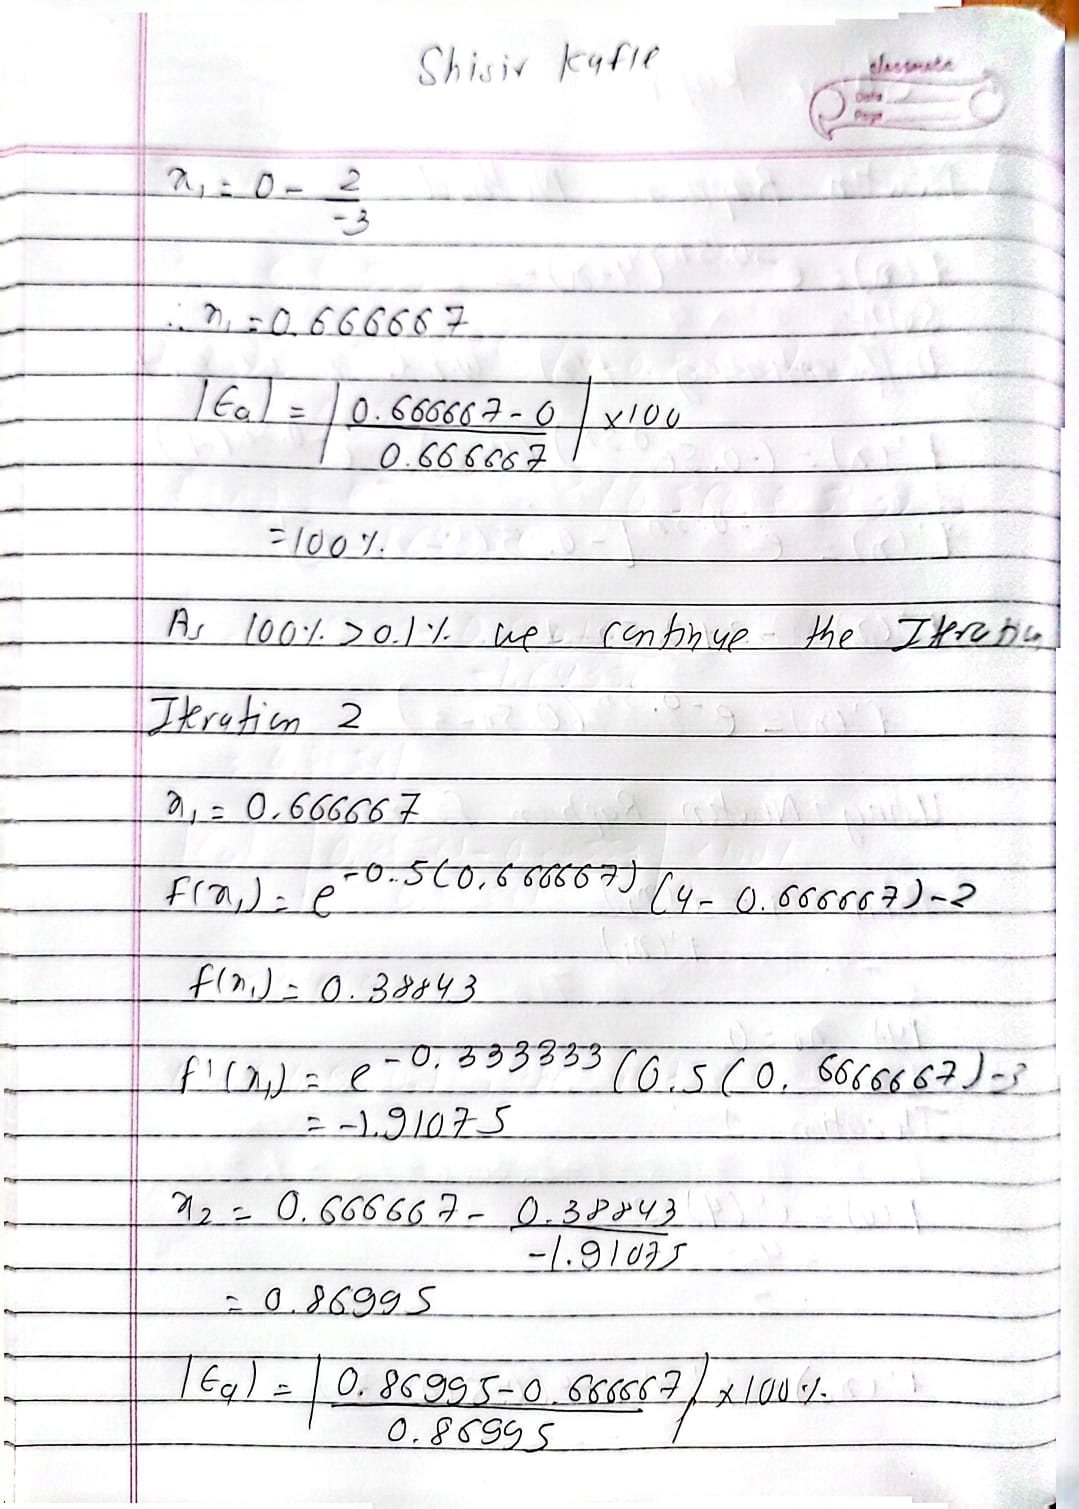 Shisir Kafle
classmate
Date
Page
x₁ = 0 - 2/-3
∴ x₁ = 0.666667
|Ea| = |(0.666667 - 0)/0.666667| x100
= 100%.
As 100% > 0.1% we continue the Iteration
Iteration 2
x₁ = 0.666667
f(x₁) = e^-0.5(0.666667) (4 - 0.666667) - 2
f(x₁) = 0.38843
f'(x₁) = e^-0.333333 (0.5(0.6666667)-3
= -1.91075
x₂ = 0.666667 - 0.38843/-1.91075
= 0.86995
|Ea| = |(0.86995 - 0.666667)/0.86995| x 100%.